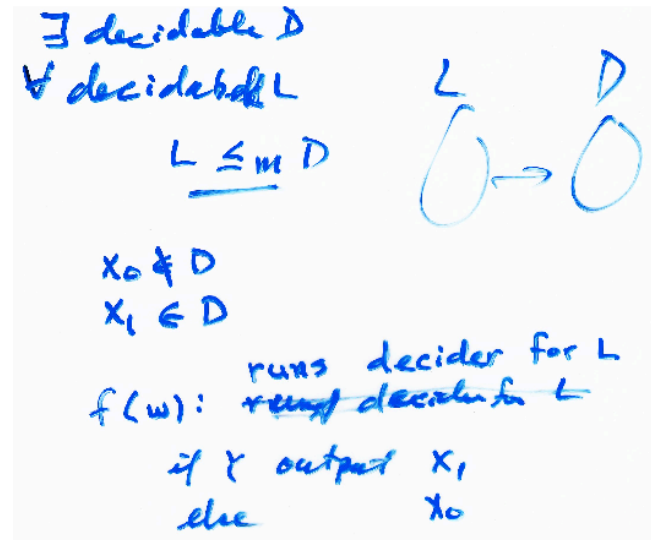 ∃ decidable D
∀ decidable L
L D
L ≤m D
x₀ ∉ D
x₁ ∈ D
runs decider for L
f(w): runs decider for L
if Y output x₁
else x₀